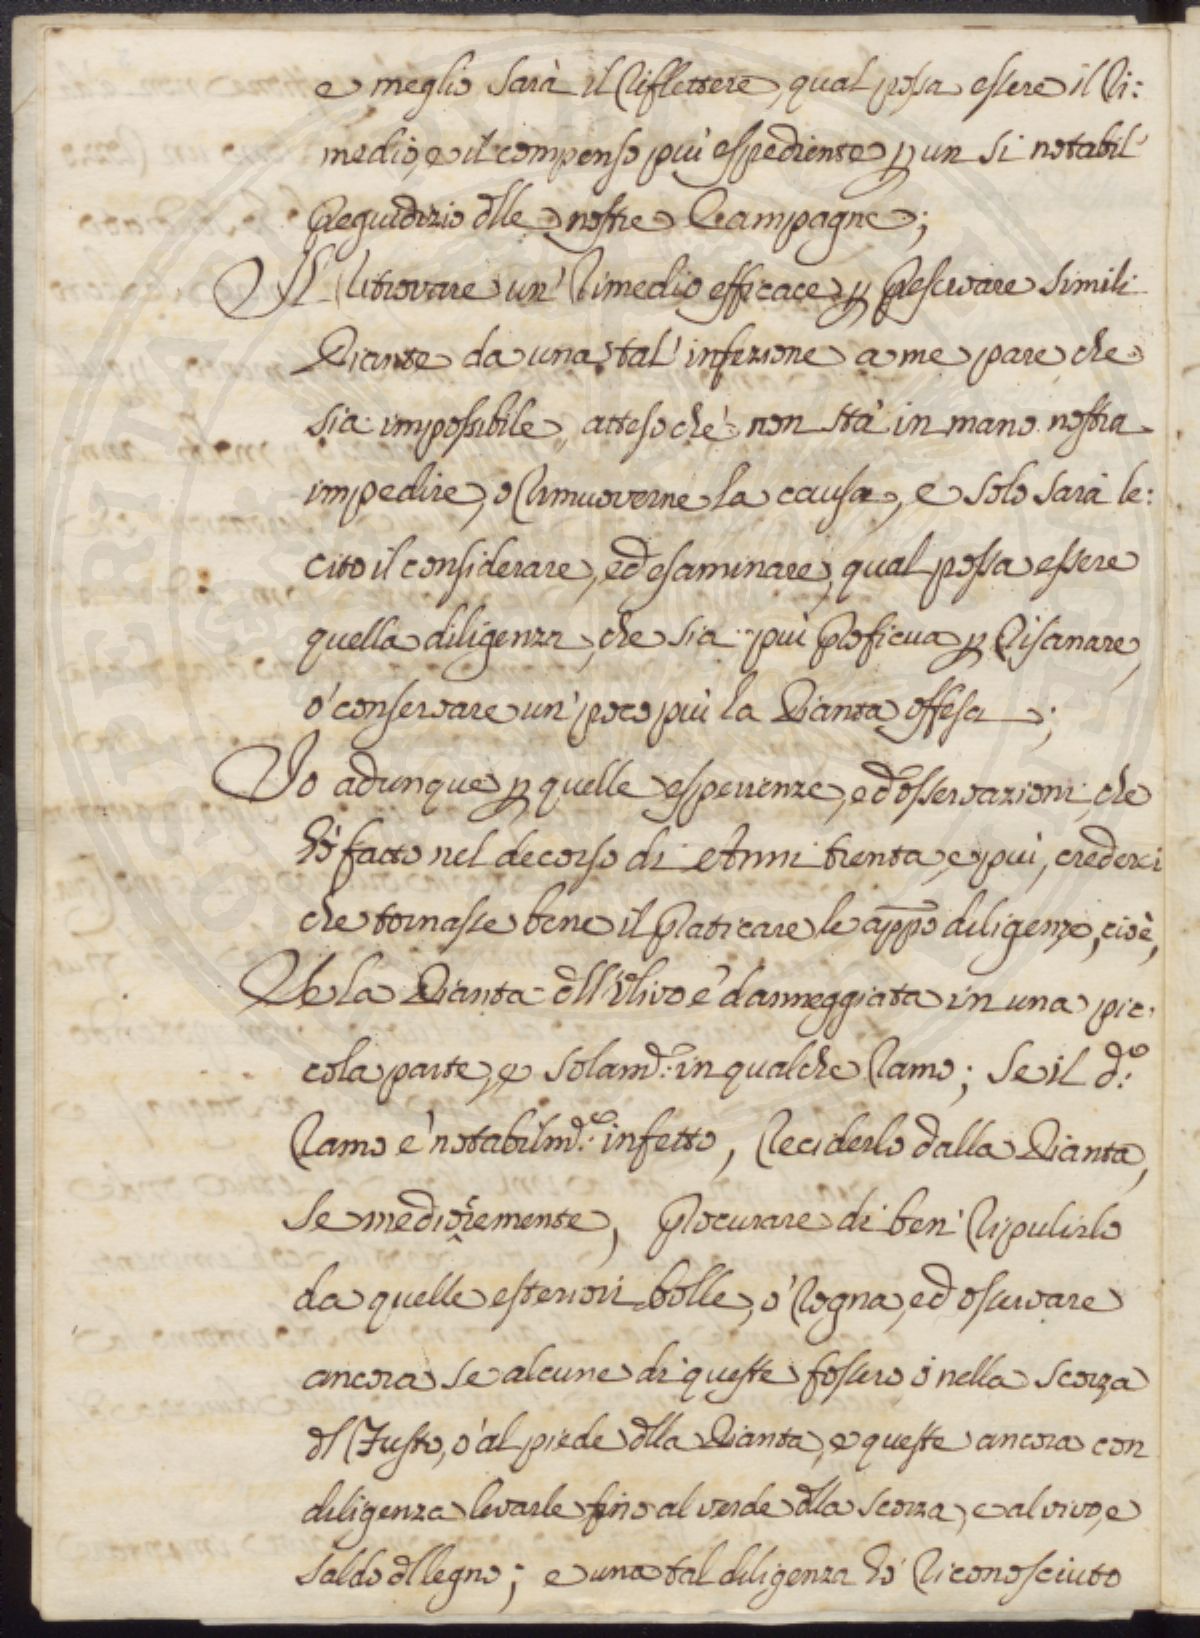 e meglio sarà il Riflettere, qual possa essere il Ri:
medio, e il compenso più espediente p un si notabil'
Pregiudizio dlle nostre Campagne;
Il Ritrovare un' Rimedio efficace p Preservare simili
Piante da una tal' infezione a me pare che
sia impossibile, atteso che' non stà in mano nostra
impedire, o Rimuoverne la causa, e solo sarà le:
cito il considerare, ed esaminare, qual possa essere
quella diligenza, che sia più Proficua p Risanare,
o' conservare un' poco più la Pianta offesa;
Io adunque p quelle esperienze, ed osservazioni, che
hò fatto nel decorso di Anni trenta, e più, crederei
che tornasse bene il Praticare le appo diligenze, cioè,
Se la Pianta dll'Ulivo e' danneggiata in una pic:
cola parte, e solamd.e in qualche Ramo; Se il d.o
Ramo e' notabilmd.e infetto, Reciderlo dalla Pianta,
se mediocremente, Procurare di ben' Ripulirlo
da quelle esteriori bolle, o' Rogna, ed osservare
ancora se alcune di queste fossero o nella scorza
dl Fusto, o' al piede dlla Pianta, e queste ancora con
diligenza levarle fino al verde dlla scorza, e al vivo, e
saldo dl legno; e una tal diligenza hò Riconosciuto